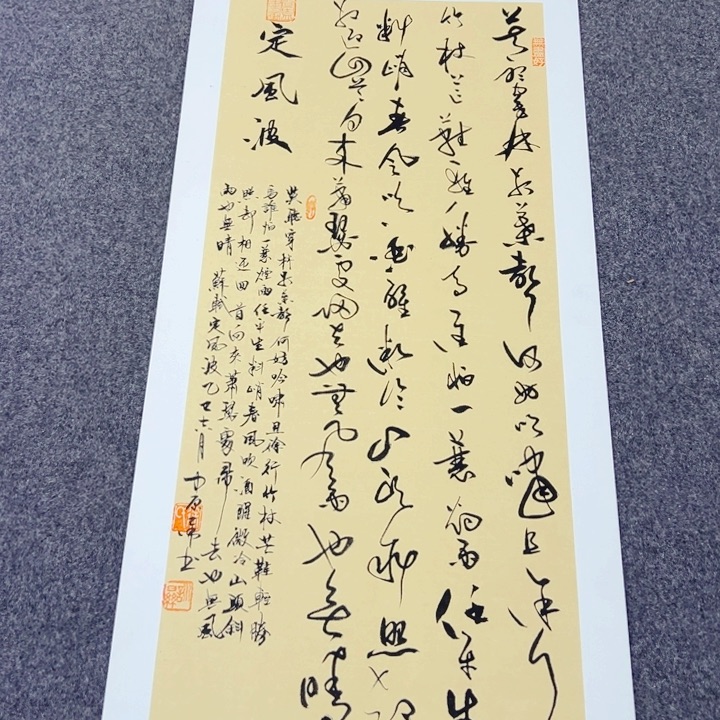 莫聽穿林打葉聲何妨吟嘯且徐行
竹杖芒鞋輕勝馬誰怕一蓑烟雨任平生
料峭春風吹酒醒微冷山頭斜照却
相迎回首向来蕭瑟處歸去也無風雨也無晴
定風波
莫聽穿林打葉聲何妨吟嘯且徐行竹杖芒鞋輕勝
馬誰怕一蓑煙雨任平生料峭春風吹酒醒微冷山頭斜
照却相迎回首向来蕭瑟處歸去也無風
雨也無晴 蘇軾定風波乙丑六月 中原书